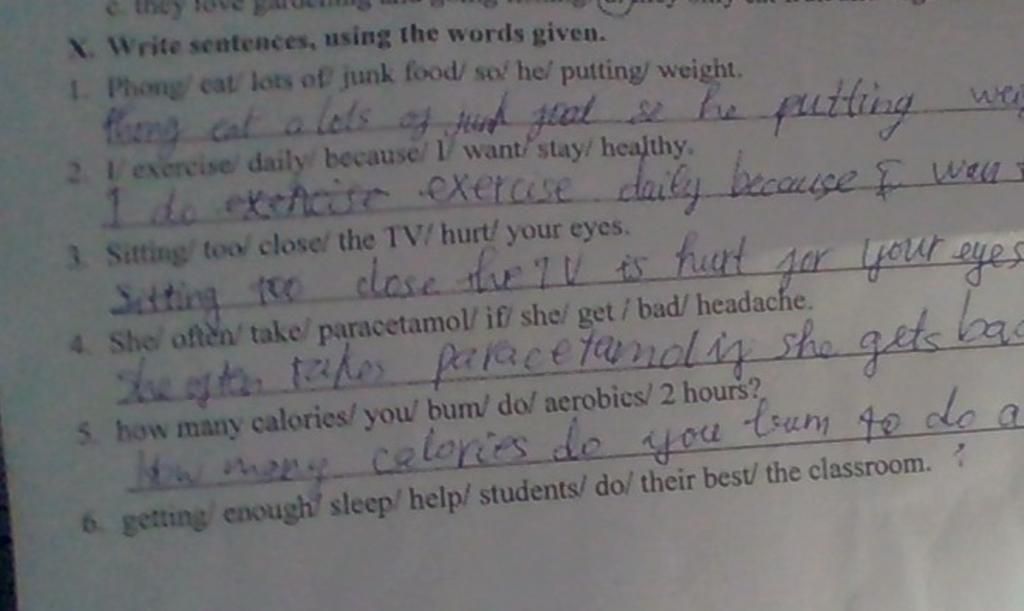 c. they love gardening and going
X. Write sentences, using the words given.
1. Phong/ eat/ lots of/ junk food/ so/ he/ putting/ weight.
Phong eat a lots of junk food so he putting wei
2. I/ exercise/ daily/ because/ I/ want/ stay/ healthy.
I do exercise daily because I wan
3. Sitting/ too/ close/ the TV/ hurt/ your eyes.
Sitting too close the TV is hurt for your eyes
4. She/ often/ take/ paracetamol/ if/ she/ get / bad/ headache.
She often takes paracetamol if she gets bac
5. how many calories/ you/ bum/ do/ aerobics/ 2 hours?
How many calories do you bum to do a
?
6. getting/ enough/ sleep/ help/ students/ do/ their best/ the classroom.